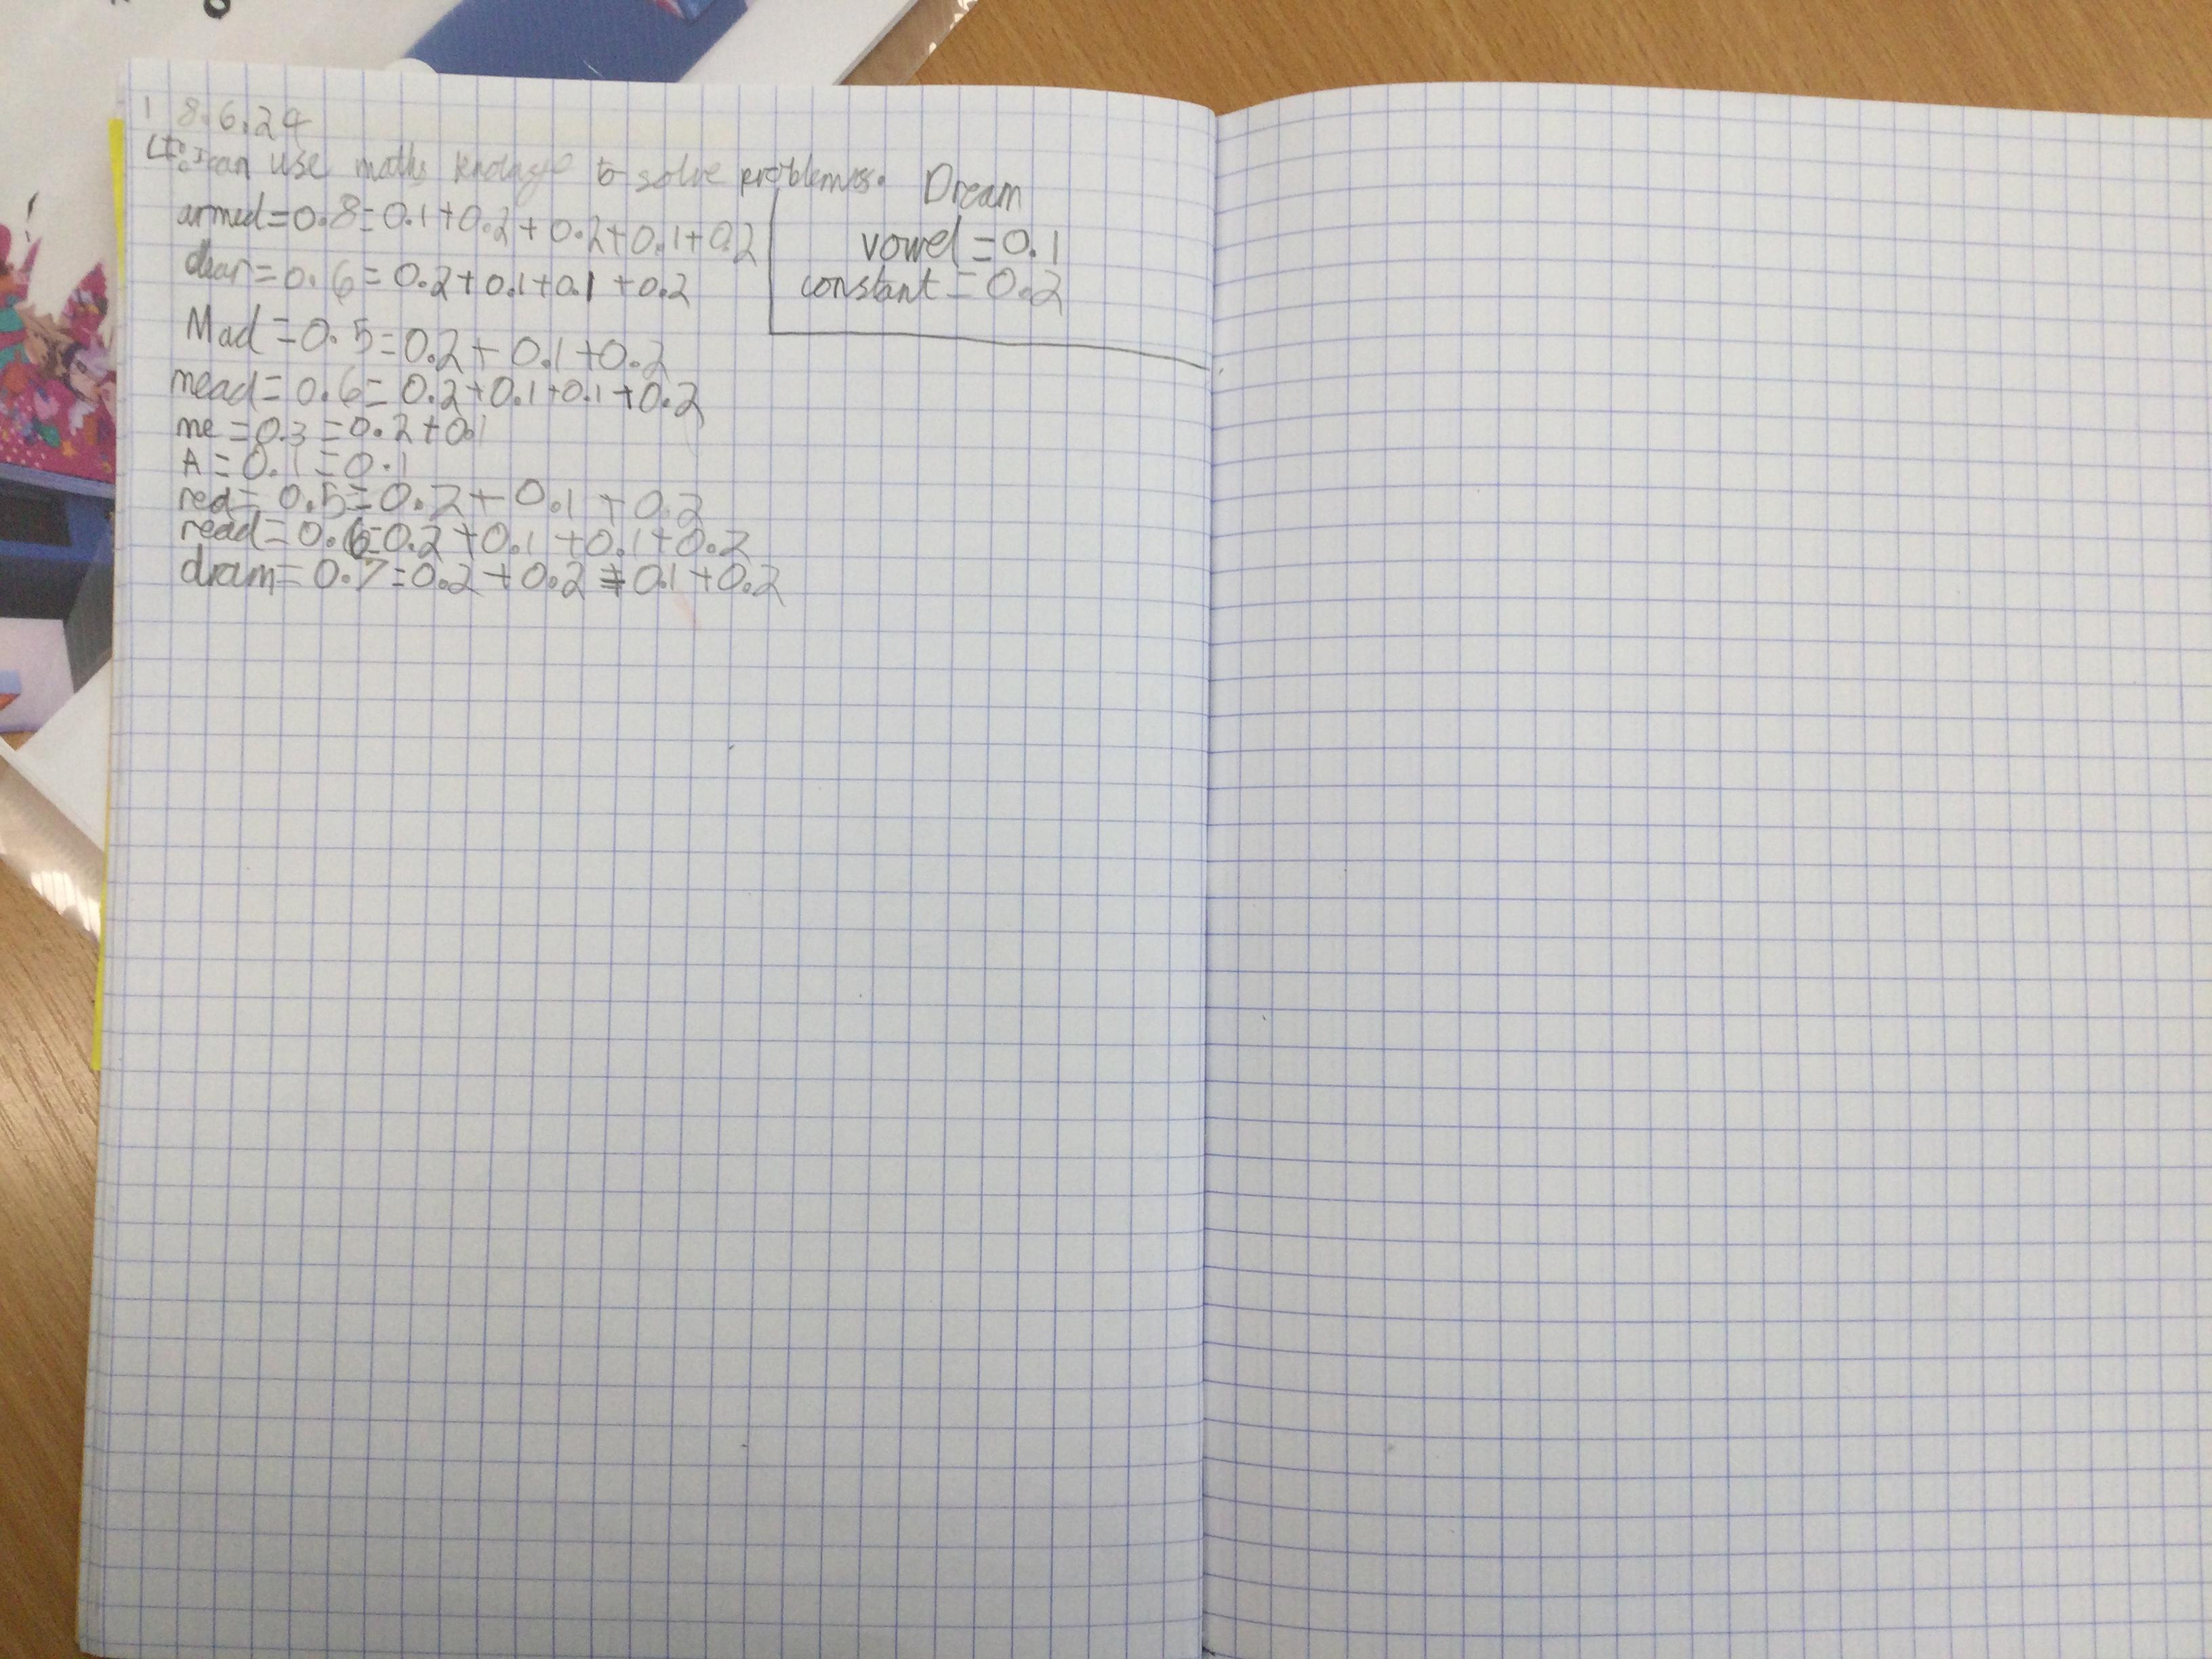 18.6.24
LI: I can use maths to solve problems.
armed=0.8=0.1+0.2+0.2+0.1+0.2
dear=0.6=0.2+0.1+0.1+0.2
Mad=0.5=0.2+0.1+0.2
mead=0.6=0.2+0.1+0.1+0.2
me=0.3=0.2+0.1
A=0.1=0.1
red=0.5=0.2+0.1+0.2
read=0.6=0.2+0.1+0.1+0.2
dram=0.7=0.2+0.2+0.1+0.2
Dream
vowel=0.1
constant=0.2